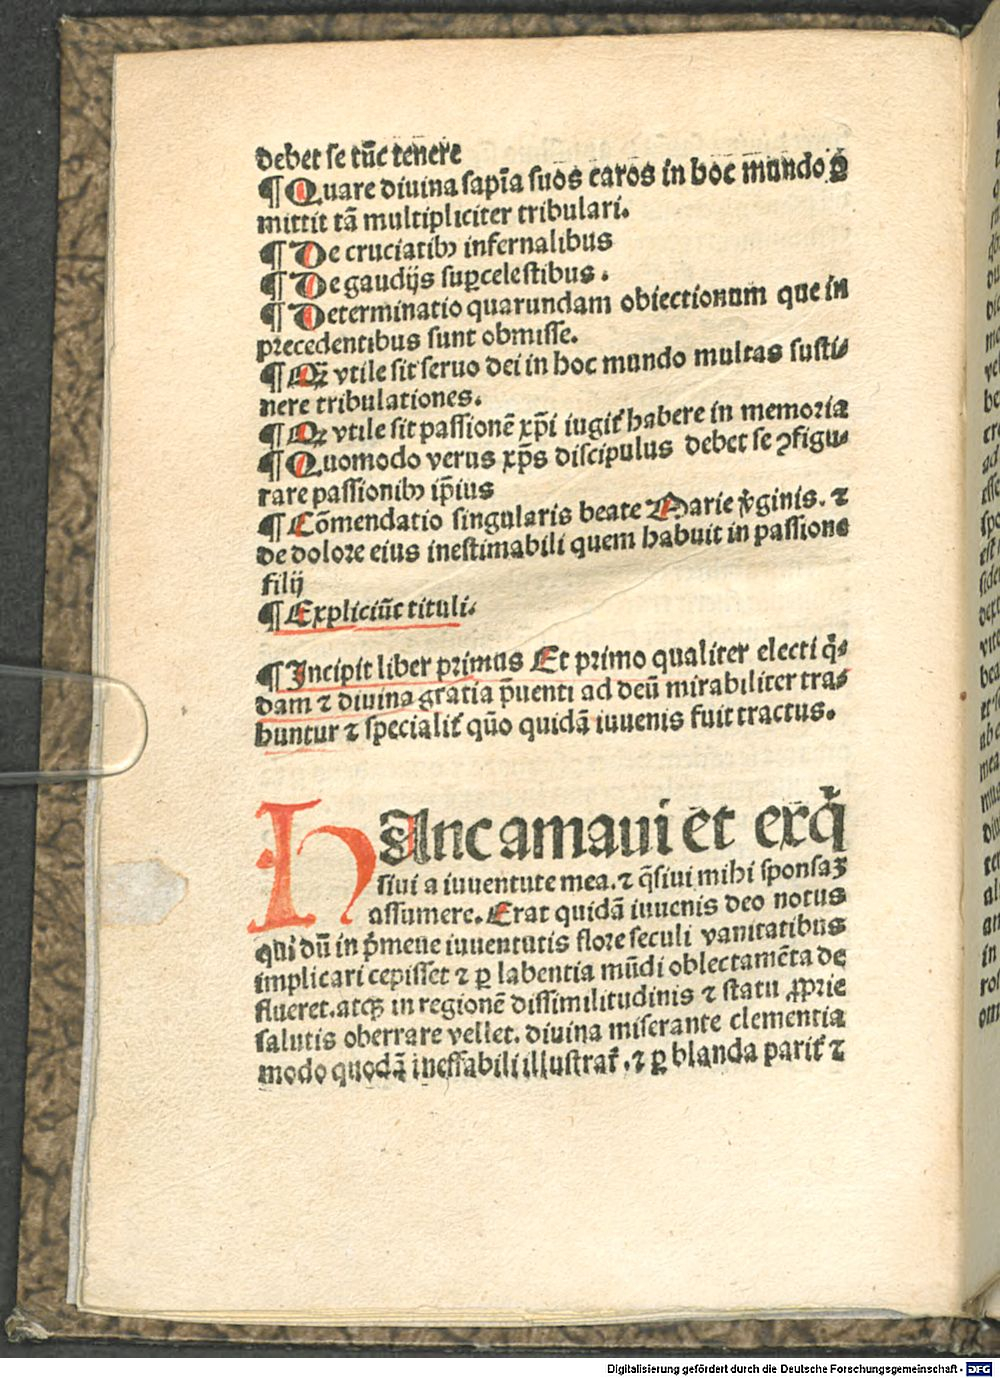 debet se tūc tenere
¶ Quare diuina sapīa suos caros in hoc mundo ꝑ
mittit tā multipliciter tribulari.
¶ De cruciatibꝫ infernalibus
¶ De gaudijs suꝑcelestibus .
¶ Determinatio quarundam obiectionum que in
precedentibus sunt obmisse.
¶ Qꝫ vtile sit seruo dei in hoc mundo multas susti⸗
nere tribulationes.
¶ Qꝫ vtile sit passionē xp̄i iugit᷑ habere in memoria
¶ Quomodo verus xp̄s discipulus debet se ꝯfigu⸗
rare passionibꝫ ip̄ius
¶ Cōmendatio singularis beate Marie v̄ginis. ⁊
de dolore eius inestimabili quem habuit in passione
filij
¶ Expliciūt tituli.
¶ Incipit liber primus Et primo qualiter electi q̄⸗
dam ⁊ diuina gratia p̄uenti ad deū mirabiliter tra⸗
huntur ⁊ specialit᷑ quō quidā iuuenis fuit tractus.
HAnc amaui et exq̄
siui a iuuentute mea. ⁊ q̄siui mihi sponsaꝫ
assumere. Erat quidā iuuenis deo notus
qui dū in p̄meue iuuentutis flore seculi vanitatibus
implicari cepisset ⁊ ꝑ labentia mūdi oblectamēta de
flueret. atqꝫ in regionē dissimilitudinis ⁊ statu ꝓprie
salutis oberrare vellet. diuina miserante clementia
modo quodā ineffabili illustrat᷑ . ⁊ ꝑ blanda parit᷑ ⁊
Digitalisierung gefördert durch die Deutsche Forschungsgemeinschaft - DFG